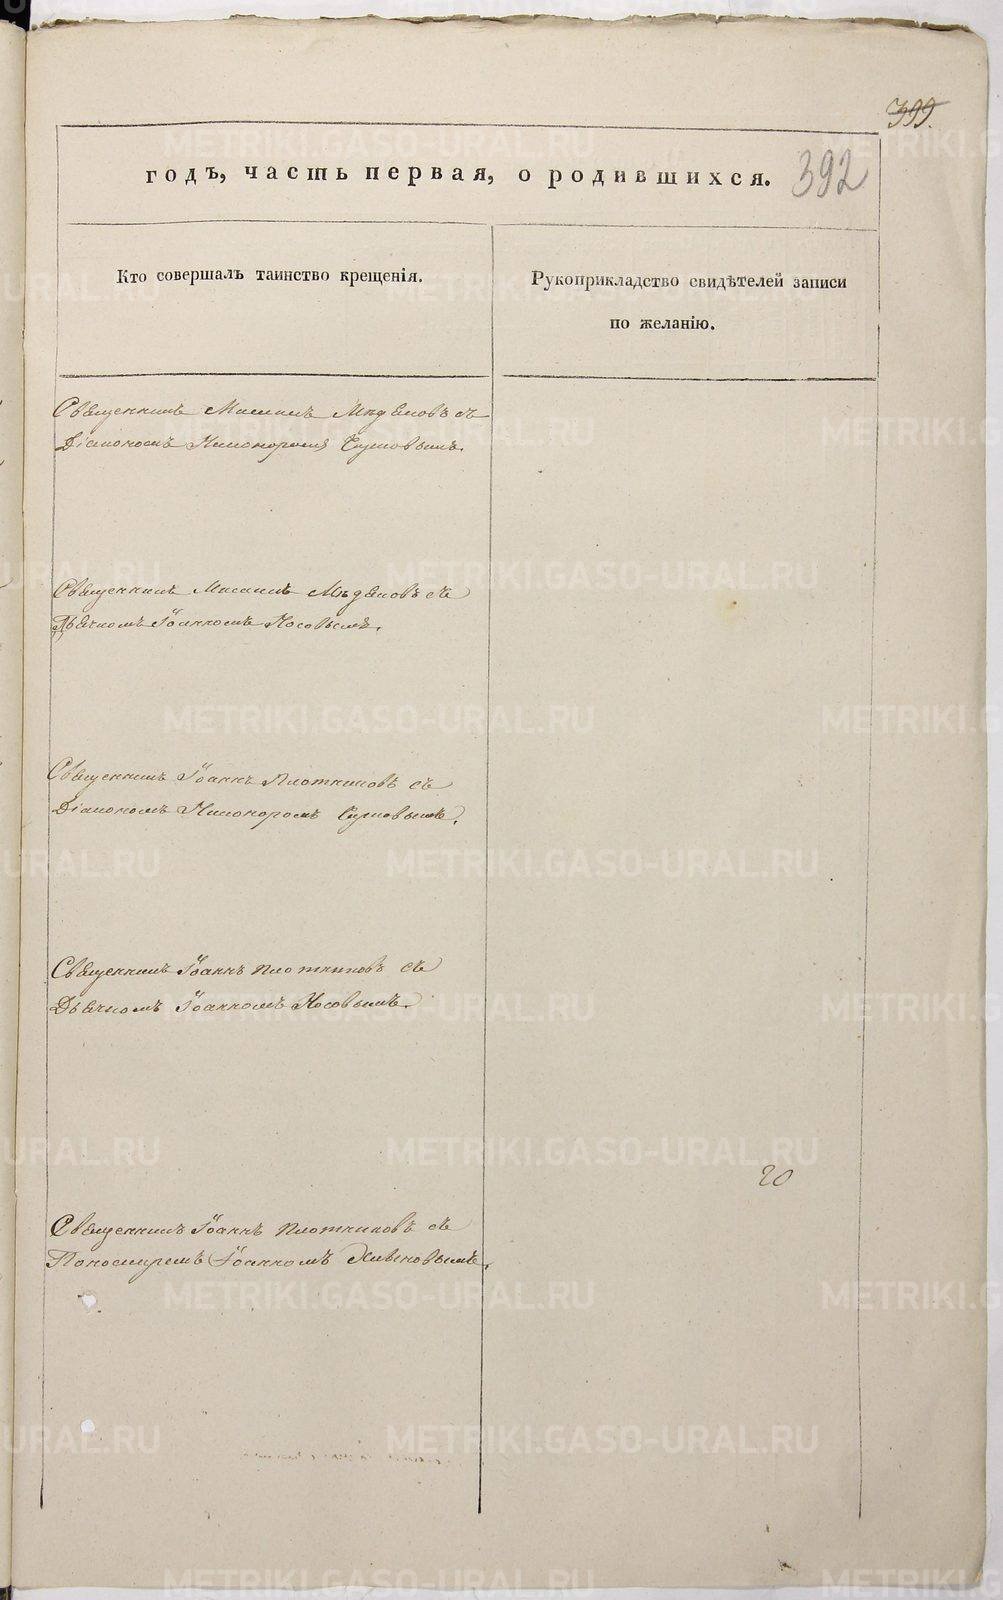 399.
392
годъ, часть первая, о родившихся.
Кто совершалъ таинство крещенія.
Рукоприкладство свидѣтелей записи
по желанію.
Священникъ Максимъ съ
Діакономъ Никоноромъ
Священникъ Максимъ съ
Дьячкомъ Іоанномъ Носовымъ.
Священникъ Іоаннъ Плотниковъ съ
Діакономъ Никоноромъ
Священникъ Іоаннъ Плотниковъ съ
Дьячкомъ Іоанномъ Носовымъ.
20
Священникъ Іоаннъ Плотниковъ съ
Пономаремъ Іоанномъ
METRIKI.GASO-URAL.RU